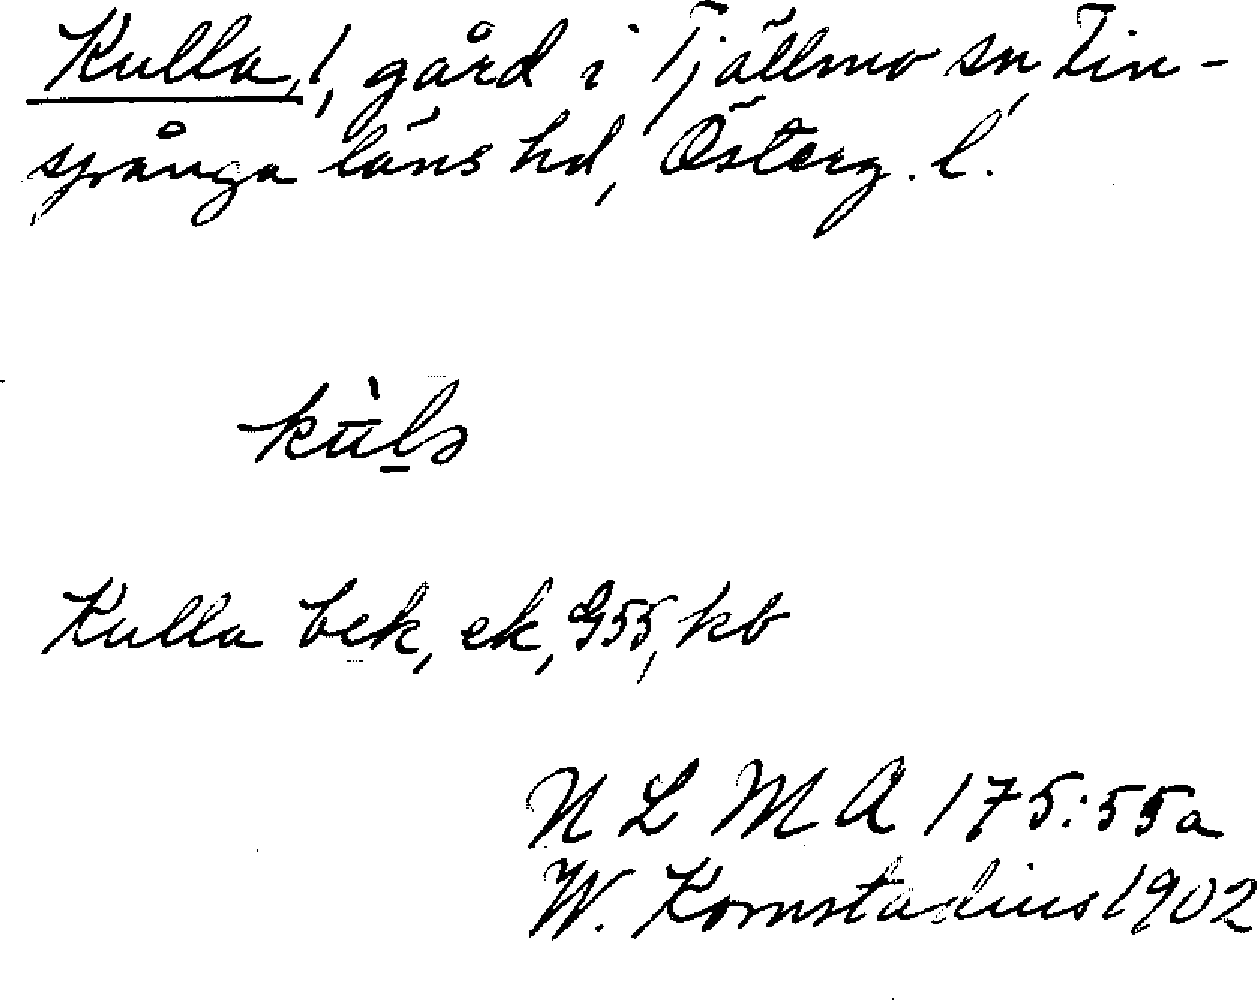 Kulla, 1, gård i Tjällmo sn, Fin-
spånga läns hd, Österg. l.
Kulla bek, ek, G55, kb
N L M A 175:55a
W. Kornstadius 1902